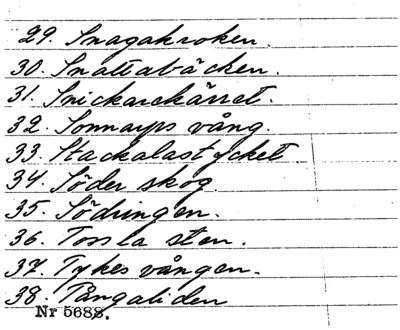 29. Snagakroken.
30. Snattabäcken.
31. Snickarekärret.
32. Sonnarps vång.
33. Stackalastycket
34. Söder skog.
35. Södringen.
36. Torsla sten.
37. Tykesvången.
38. Tångaliden
Nr 5688.